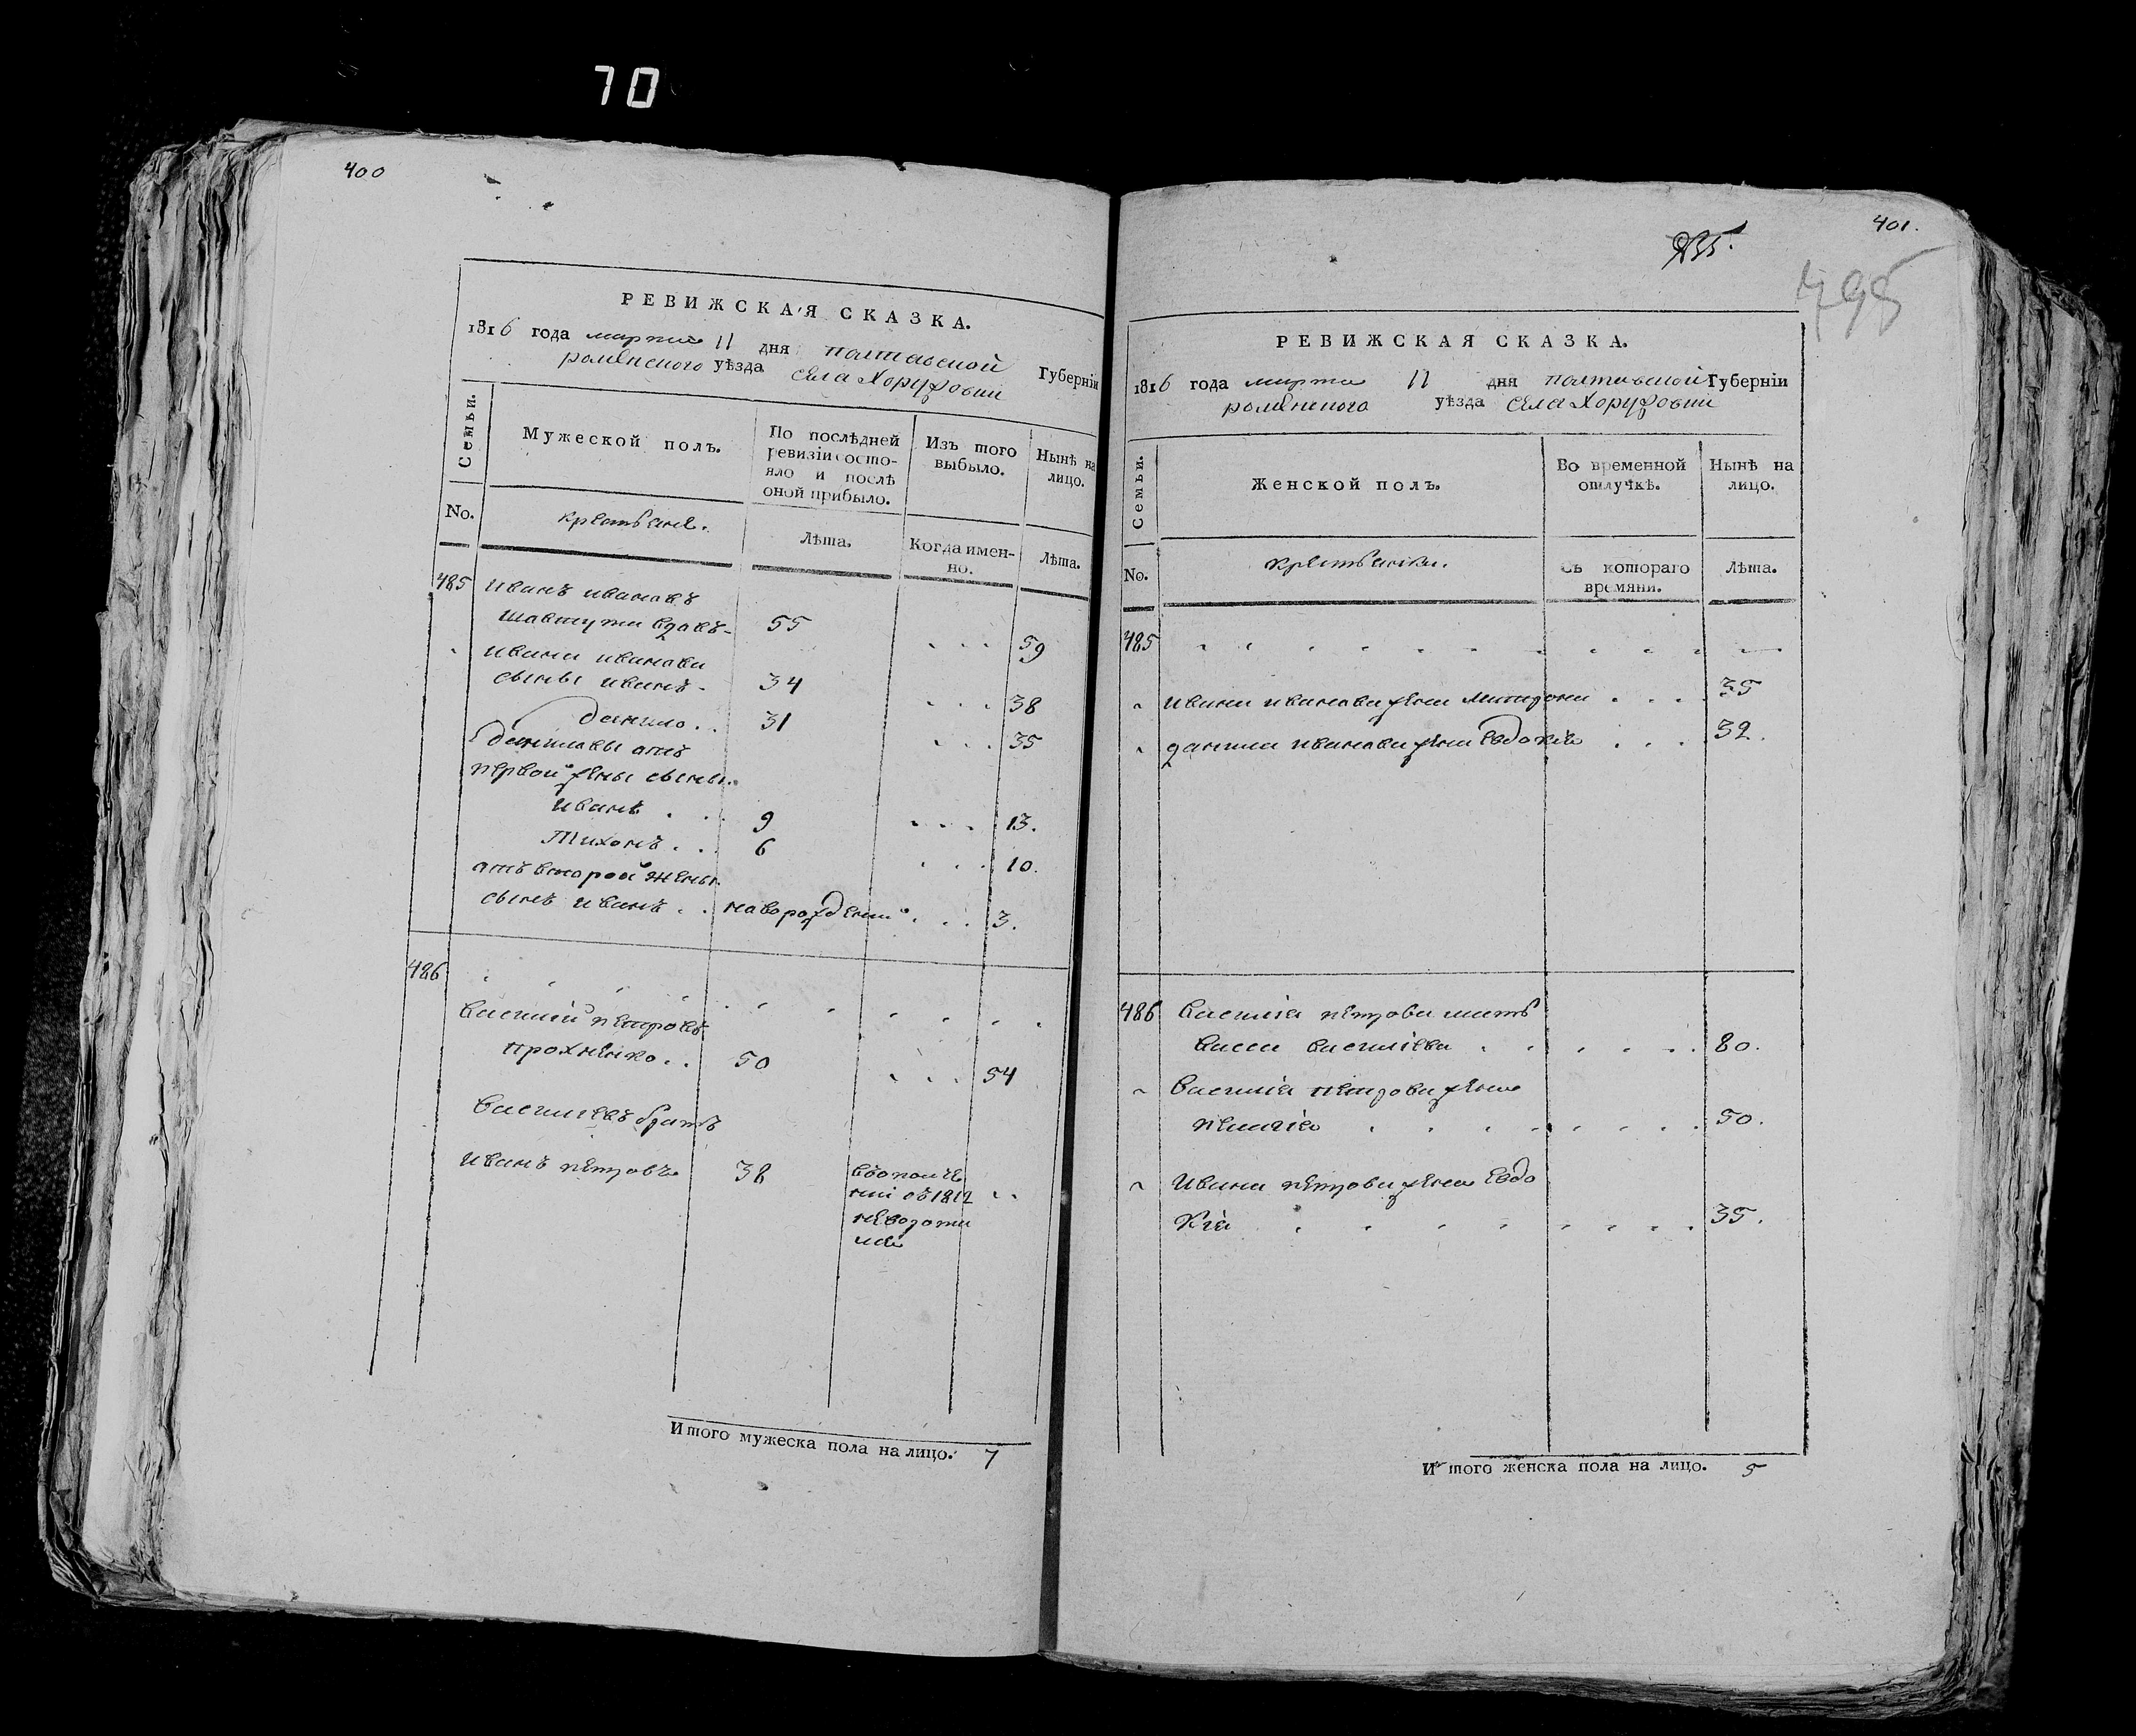 70
400
РЕВИЖСКАЯ СКАЗКА.
1816 года марта 11 дня полтавской Губерніи
роменского уѣзда села Хоружовки
Семьи.
Мужеской полъ.
По послѣдней ревизіи состояло и послѣ оной прибыло.
Изъ того выбыло.
Нынѣ на лицо.
No.
крестьяне.
Лѣта.
Когда именно.
Лѣта.
485 Иванъ ивановъ
вдовъ- 55 59
ивана иванова
сыны иванъ. 34 38
данило.. 31 35
даниловы отъ
первой жены сыны.
иванъ . . 9 13.
Тихонъ . . 6 10.
отъ второй жены
сынъ иванъ . . новорожденый . . . 3.
486
василий петровъ
прохненко . . 50 54
василиевъ братъ
иванъ петровъ 38 въ ополче
нии съ 1812
Итого мужеска пола на лицо. 7
401.
235.
498
РЕВИЖСКАЯ СКАЗКА.
1816 года марта 11 дня полтавской Губерніи
роменского уѣзда села Хоружовки
Семьи.
Женской полъ.
Во временной отлучкѣ.
Нынѣ на лицо.
No.
крестьянки.
Съ котораго времяни.
Лѣта.
485
ивана иванова жена . . . . 35
данила иванова жена Евдокия . . . 32.
486 василия петрова мать
васса василиева . . . . . . 80.
василия петрова жена
пелагия . . . . . . . . 50.
ивана петрова жена Евдо
кия . . . . . . . . 35.
Итого женска пола на лицо. 5